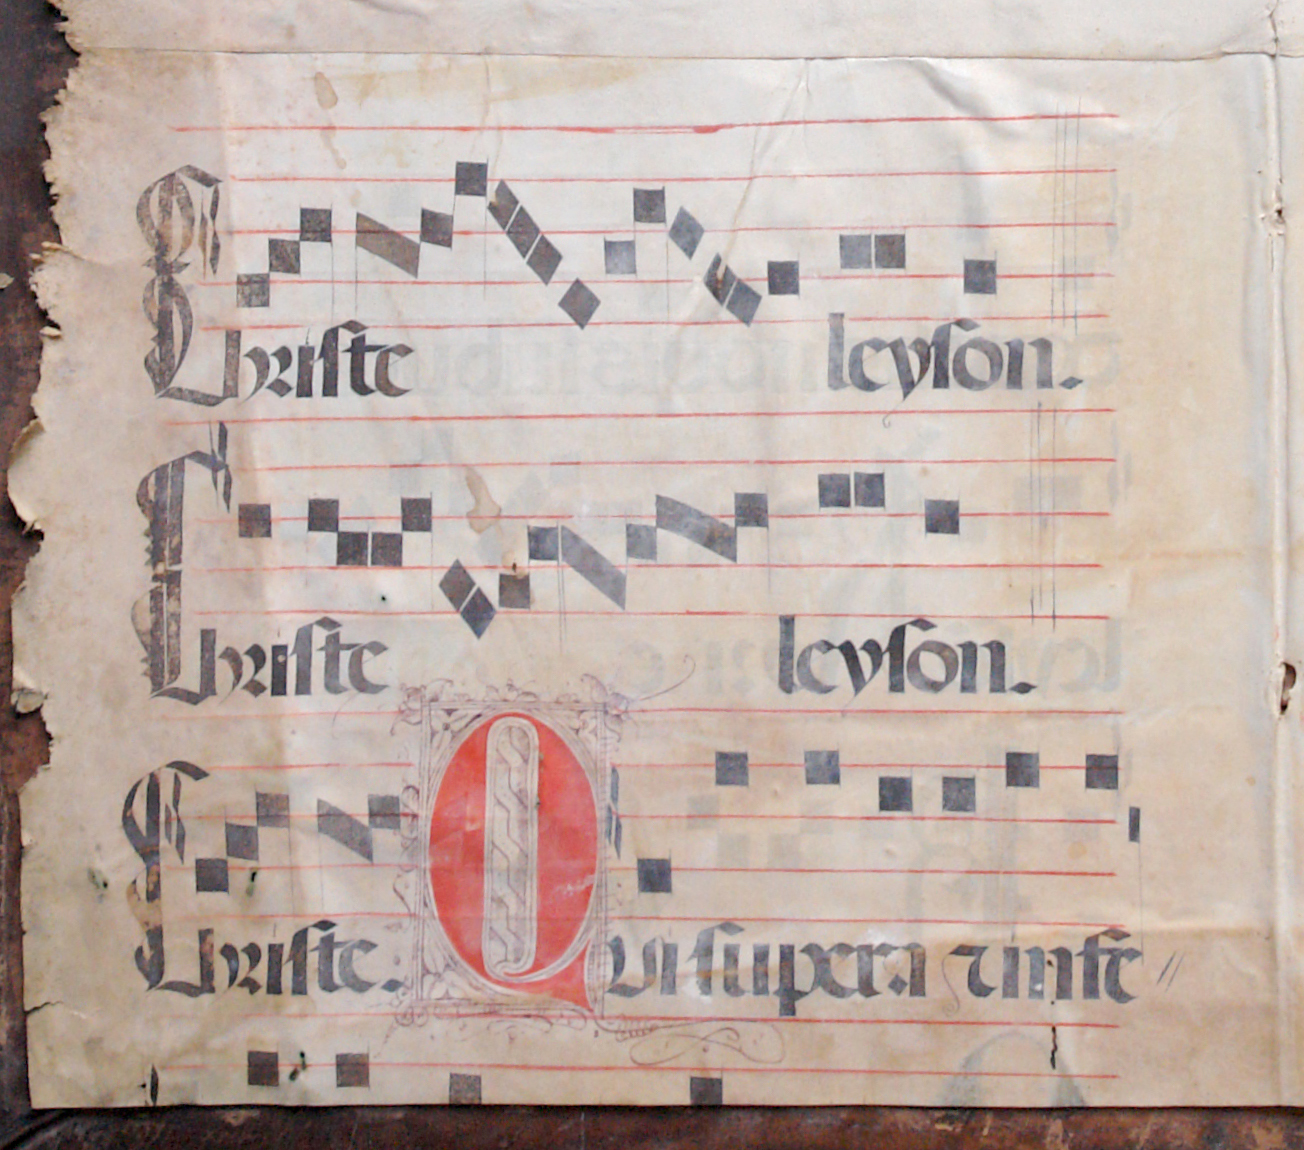 Christe leyson.
Christe leyson.
Christe. Qui supera ⁊ infe //